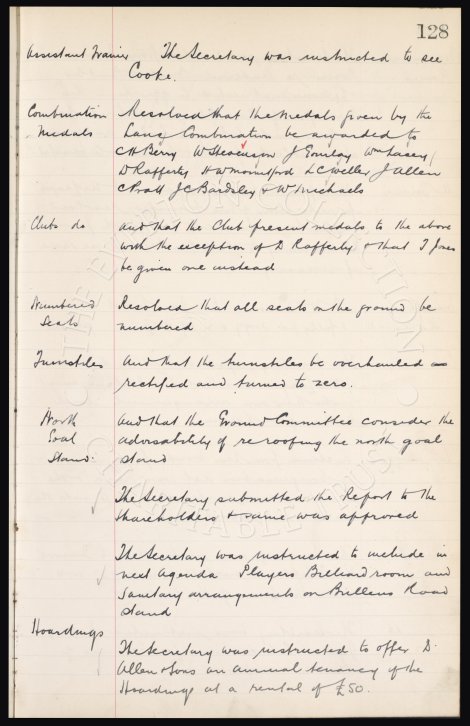 128
Assistant Trainer The Secretary was instructed to see
Cooke.
Combination Resolved that the medals given by the
Medals Lancs Combination be awarded to
C H Berry W Stevenson J Gourlay Wm Lasey
D Rafferty H W Mountford L C Weller J Allen
C Pratt J C Bardsley & W Michaels
Clubs do and that the Club present medals to the above
with the exception of D Rafferty & that T Jones
be given one instead
Numbered Resolved that all seats on the ground be
Seats numbered
Turnstiles And that the turnstiles be overhauled
rectified and turned to zero.
North And that the Ground Committee consider the
Goal advisability of re-roofing the north goal
Stand. stand
The Secretary submitted the Report to the
shareholders & same was approved
The Secretary was instructed to include in
next agenda Players Billiard room and
Sanitary arrangements on Bullens Road
stand
Hoardings
The Secretary was instructed to offer D.
Allen & Sons an annual tenancy of the
Hoardings at a rental of £50.
THE EVERTON COLLECTION
CHARITABLE TRUST